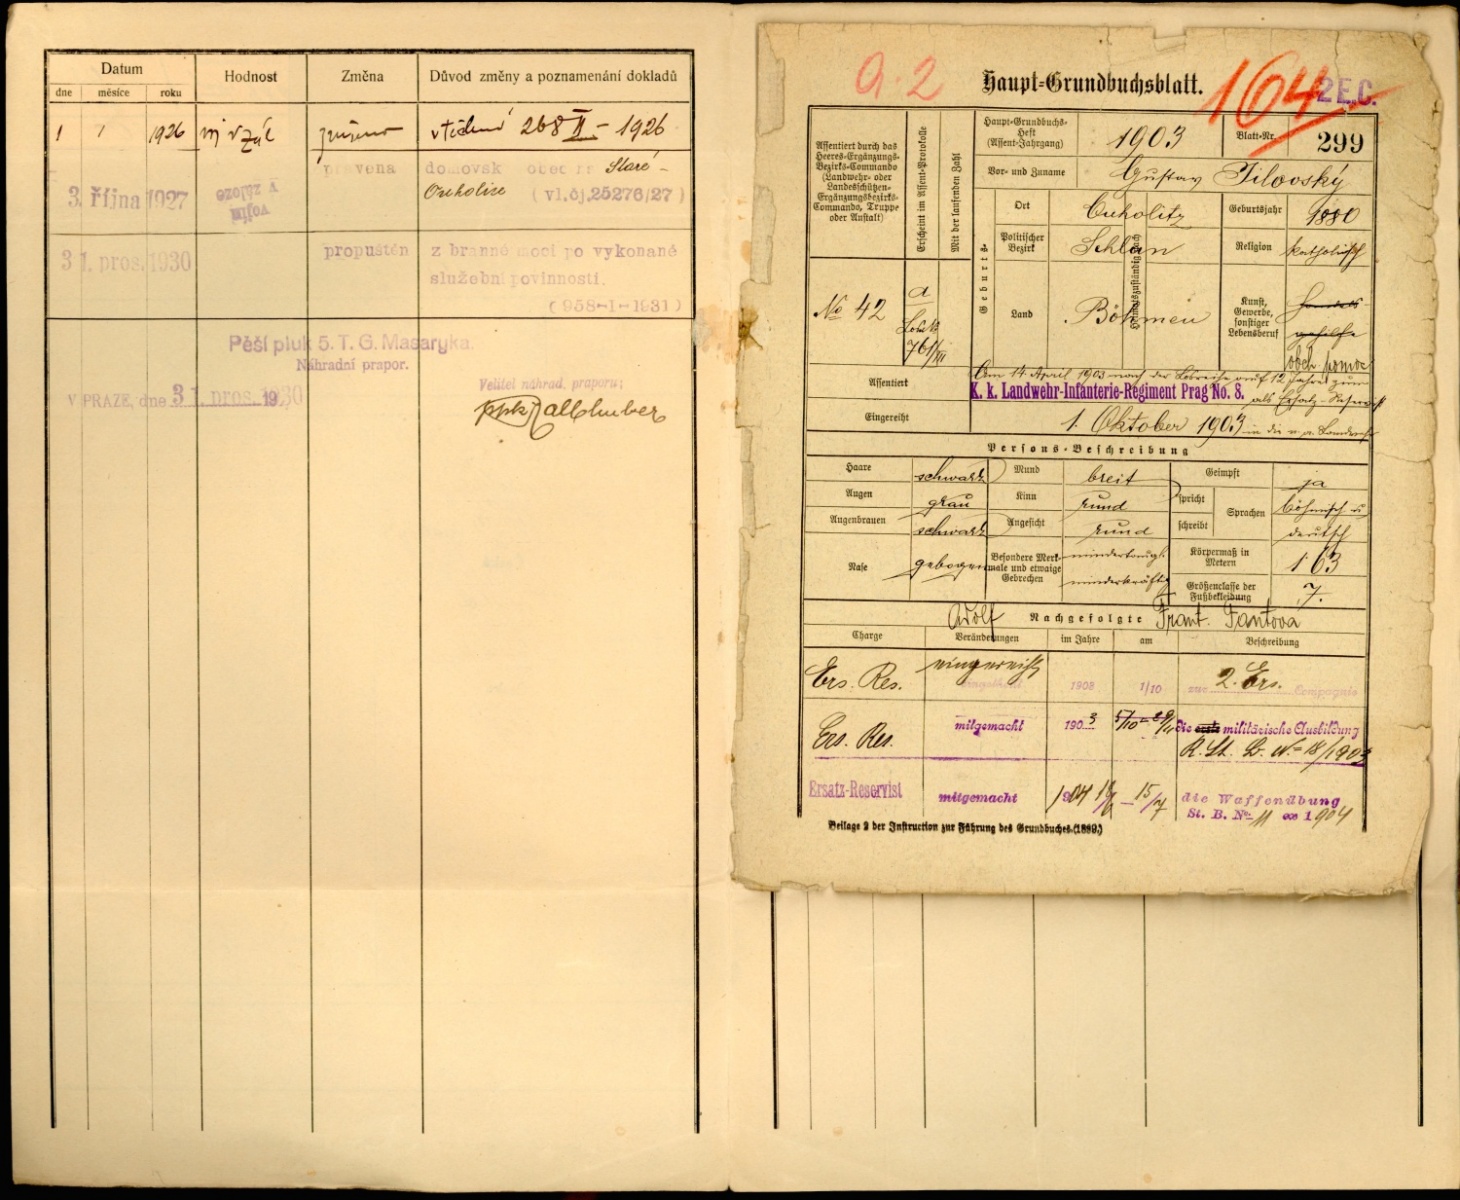 Datum
Hodnost
Změna
Důvod změny a poznamenání dokladů
dne
měsíce
roku
1
1926
voj v zál
268 II – 1926
3. října 1927
vojín
v záloze
domovsk obec
Staré
Ouholice
(vl.čj. 25276/27)
31. pros. 1930
propuštěn
z branné moci po vykonané
služební povinnosti.
(958-I-1931)
Pěší pluk 5. T. G. Masaryka.
Náhradní prapor.
V PRAZE, dne 31. pros. 1930
Velitel náhrad. praporu:
a.2
Haupt-Grundbuchsblatt.
164
2 E.C.
Assentiert durch das
Heeres-Ergänzungs-
Bezirks-Commando
(Landwehr- oder
Landesschützen-
Ergänzungsbezirks-
Commando, Truppe
oder Anstalt)
Erscheint im Assent-Protokolle
Mit der laufenden Zahl
Haupt-Grundbuchs-
Heft
(Assent-Jahrgang)
1903
Blatt-Nr.
299
Vor- und Zuname
Gustav Jilovský
Geburts-
Ort
Heimatszuständig nach
Geburtsjahr
1880
Politischer
Bezirk
Schlan
Religion
katholisch
Land
Böhmen
Kunst,
Gewerbe,
sonstiger
Lebensberuf
No 42
a
76/III
obch. pomoc
Assentiert
Am 14 April 1903 nach der Losreihe auf 12 Jahre zum
K. k. Landwehr-Infanterie-Regiment Prag No. 8.
als Ersatz-Reservist
Eingereiht
1. Oktober 1903 in die
Persons-Beschreibung
Haare
schwarz
Mund
breit
Geimpft
ja
Augen
grau
Kinn
rund
spricht
Sprachen
böhmisch u
Augenbrauen
schwarz
Angesicht
rund
schreibt
deutsch
Nase
gebogen
Besondere Merk-
male und etwaige
Gebrechen
mindertaugl.
minderkräftig
Körpermaß in
Metern
1.63
Größenclasse der
Fußbekleidung
7.
Adolf
Nachgefolgte
Frant. Fantova
Charge
Veränderungen
im Jahre
am
Beschreibung
Ers. Res.
eingereiht
1903
1/10
zur 2. Ers. Compagnie
Ers. Res.
mitgemacht
1903
die erste militärische Ausbildung
No 18/1903
Ersatz-Reservist
mitgemacht
1904
15/7
die Waffenübung
St. B. No 11 ex 1904
Beilage 2 der Instruction zur Führung des Grundbuches (1889.)